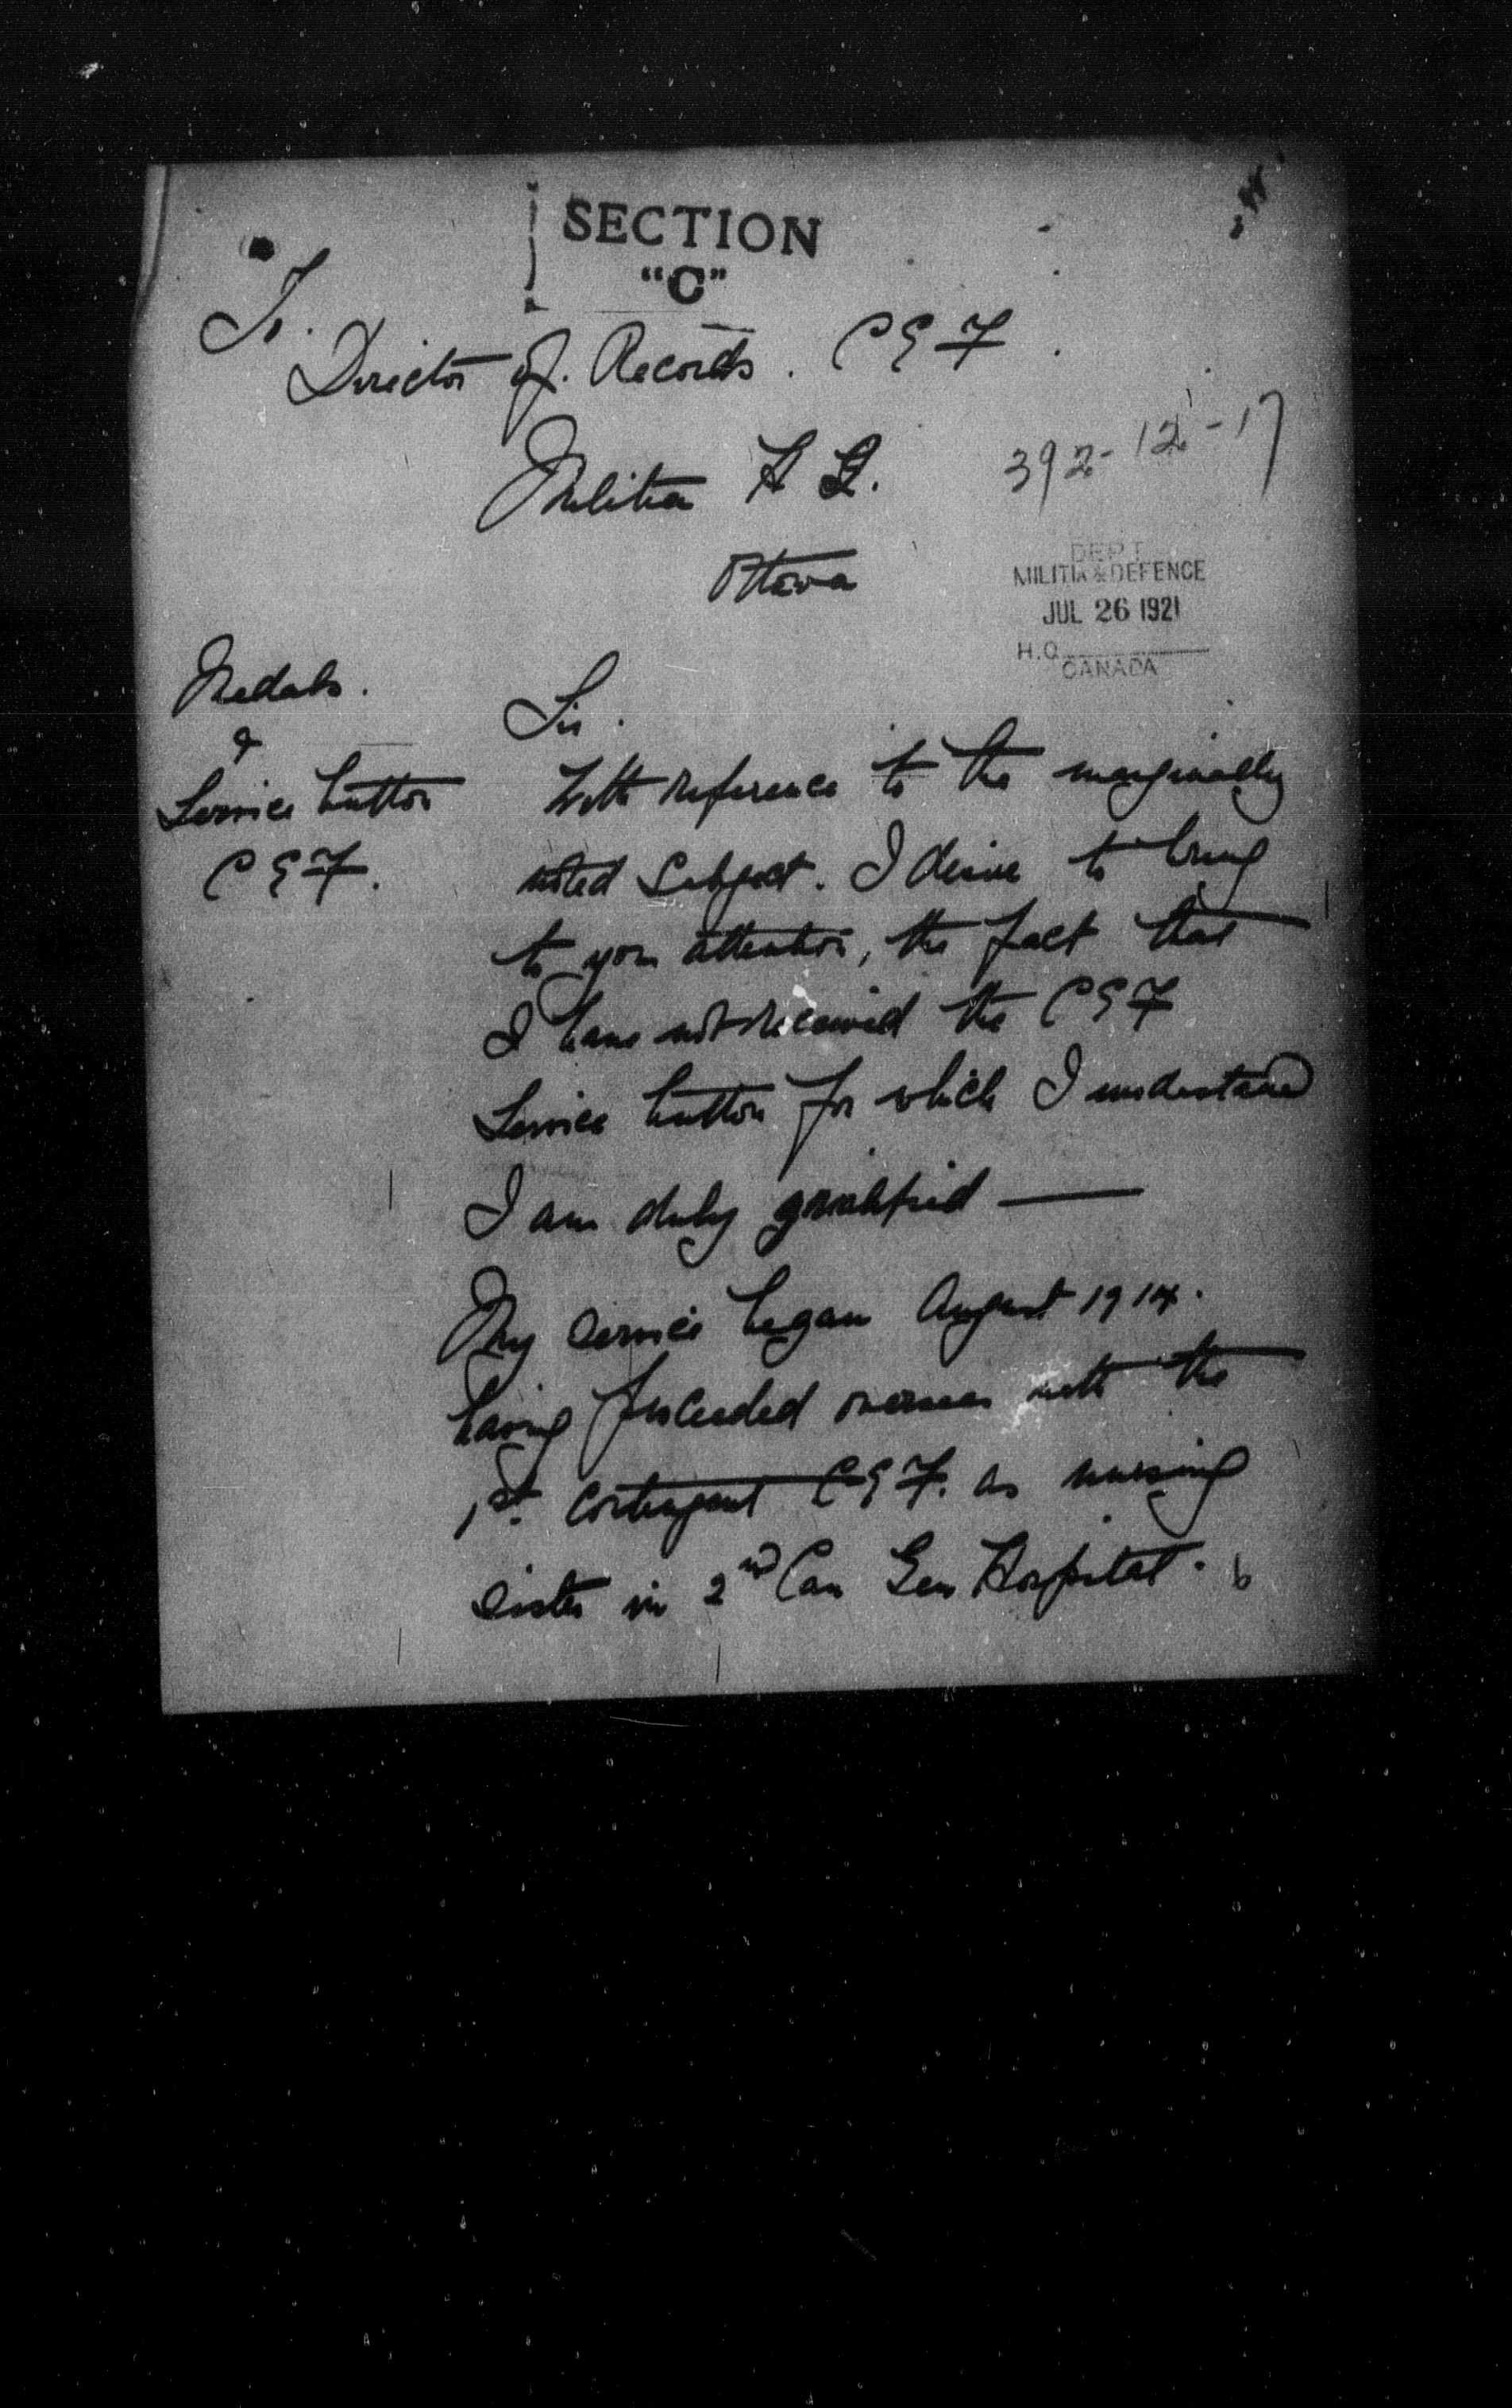 SECTION
"C"
To.
Director of. Records. C E F.
Militia H Q.
392-12-17
Ottawa
DEPT.
MILITIA & DEFENCE
JUL 26 1921
H.Q.
CANADA
Medals.
&
Service button
C E F.
Sir.
With reference to the marginally
noted subject. I desire to bring
to your attention, the fact that
I have not received the C E F
Service button for which I understand
I am duly qualified —
My service began August 1914.
having proceeded overseas with the
1st. Contingent C E F. as nursing
sister in 2nd Can Gen Hospital.